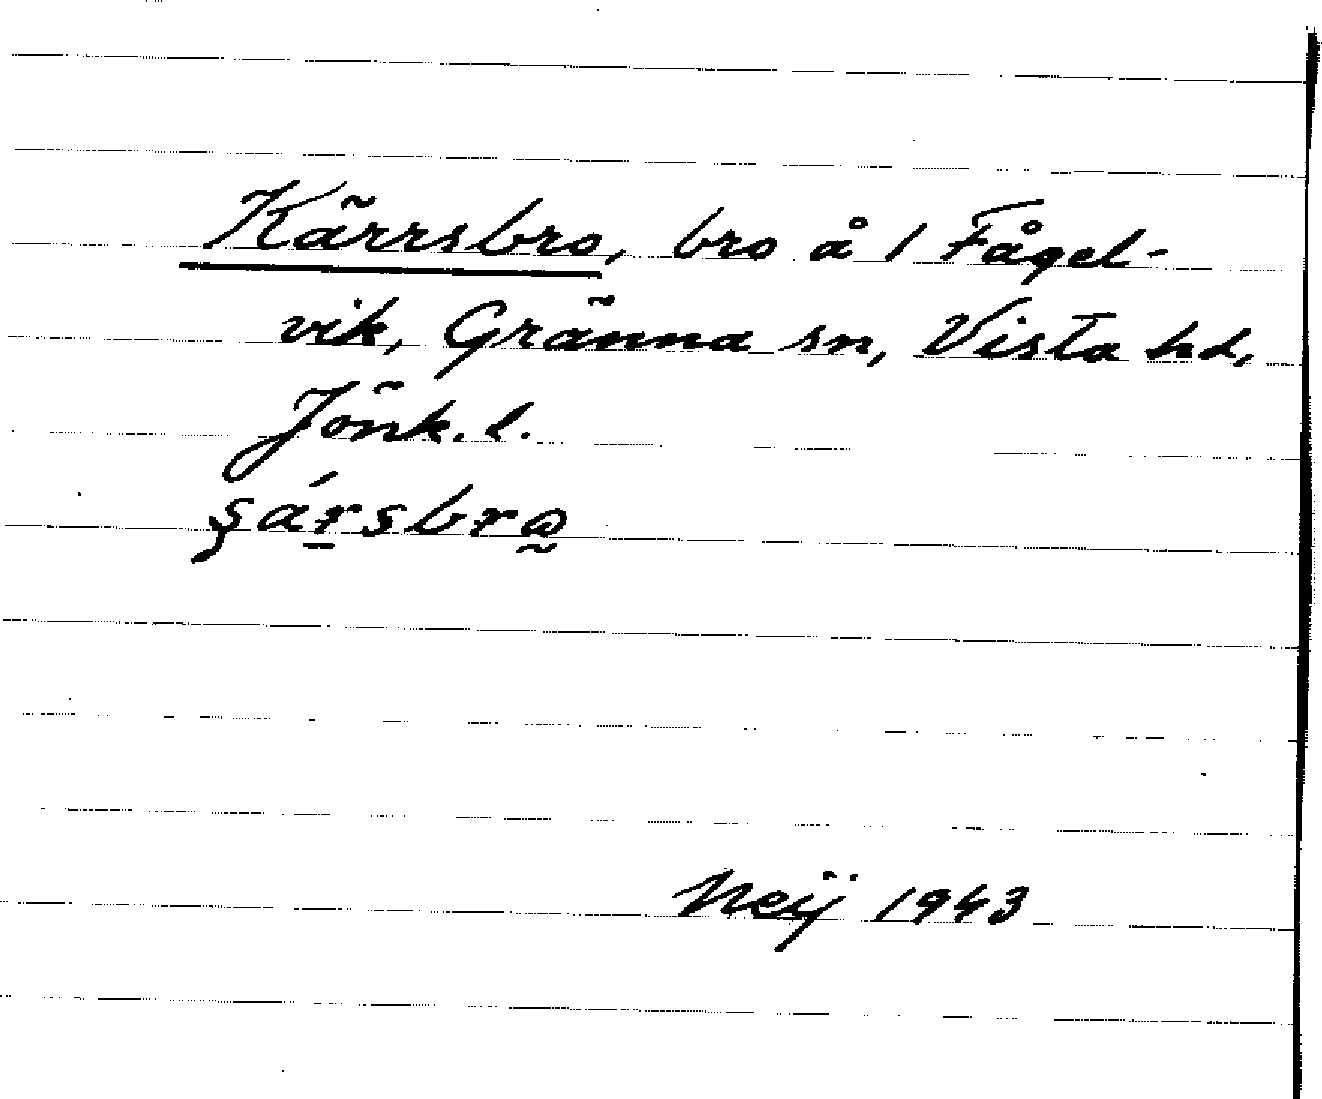 Kärrsbro, bro å 1 Fågel-
vik, Gränna sn, Vista hd,
Jönk. l.
şársbrω
Neij 1943